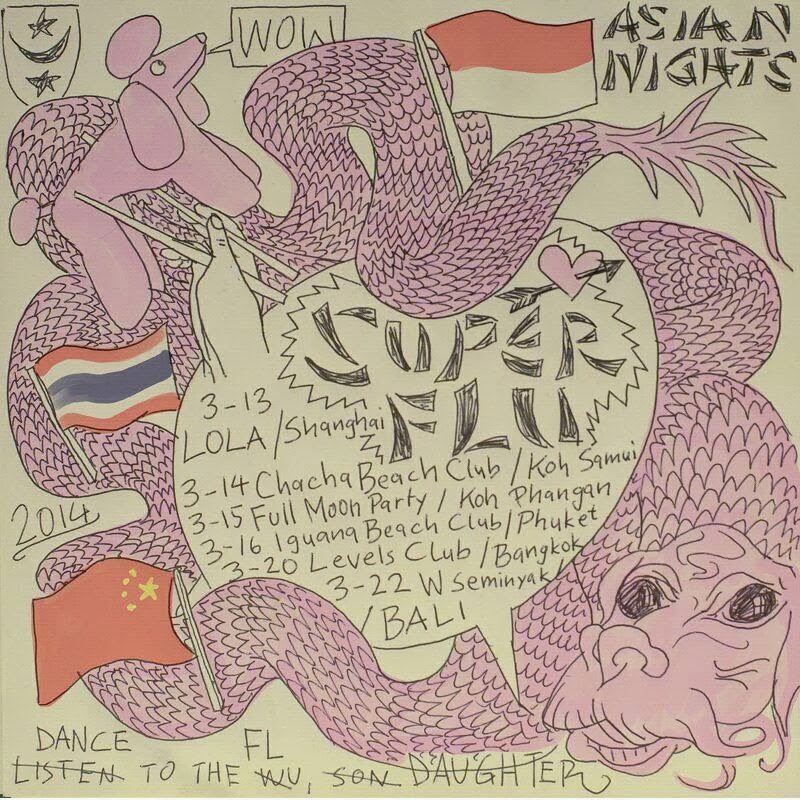 WOW
ASIAN
NIGHTS
SUPER
FLU
3-13
LOLA / Shanghai
3-14 Chacha Beach Club / Koh Samui
3-15 Full Moon Party / Koh Phangan
3-16 Iguana Beach Club / Phuket
3-20 Levels Club / Bangkok
3-22 W Seminyak /
/ BALI
2014
DANCE FL
LISTEN TO THE WU, SON DAUGHTER